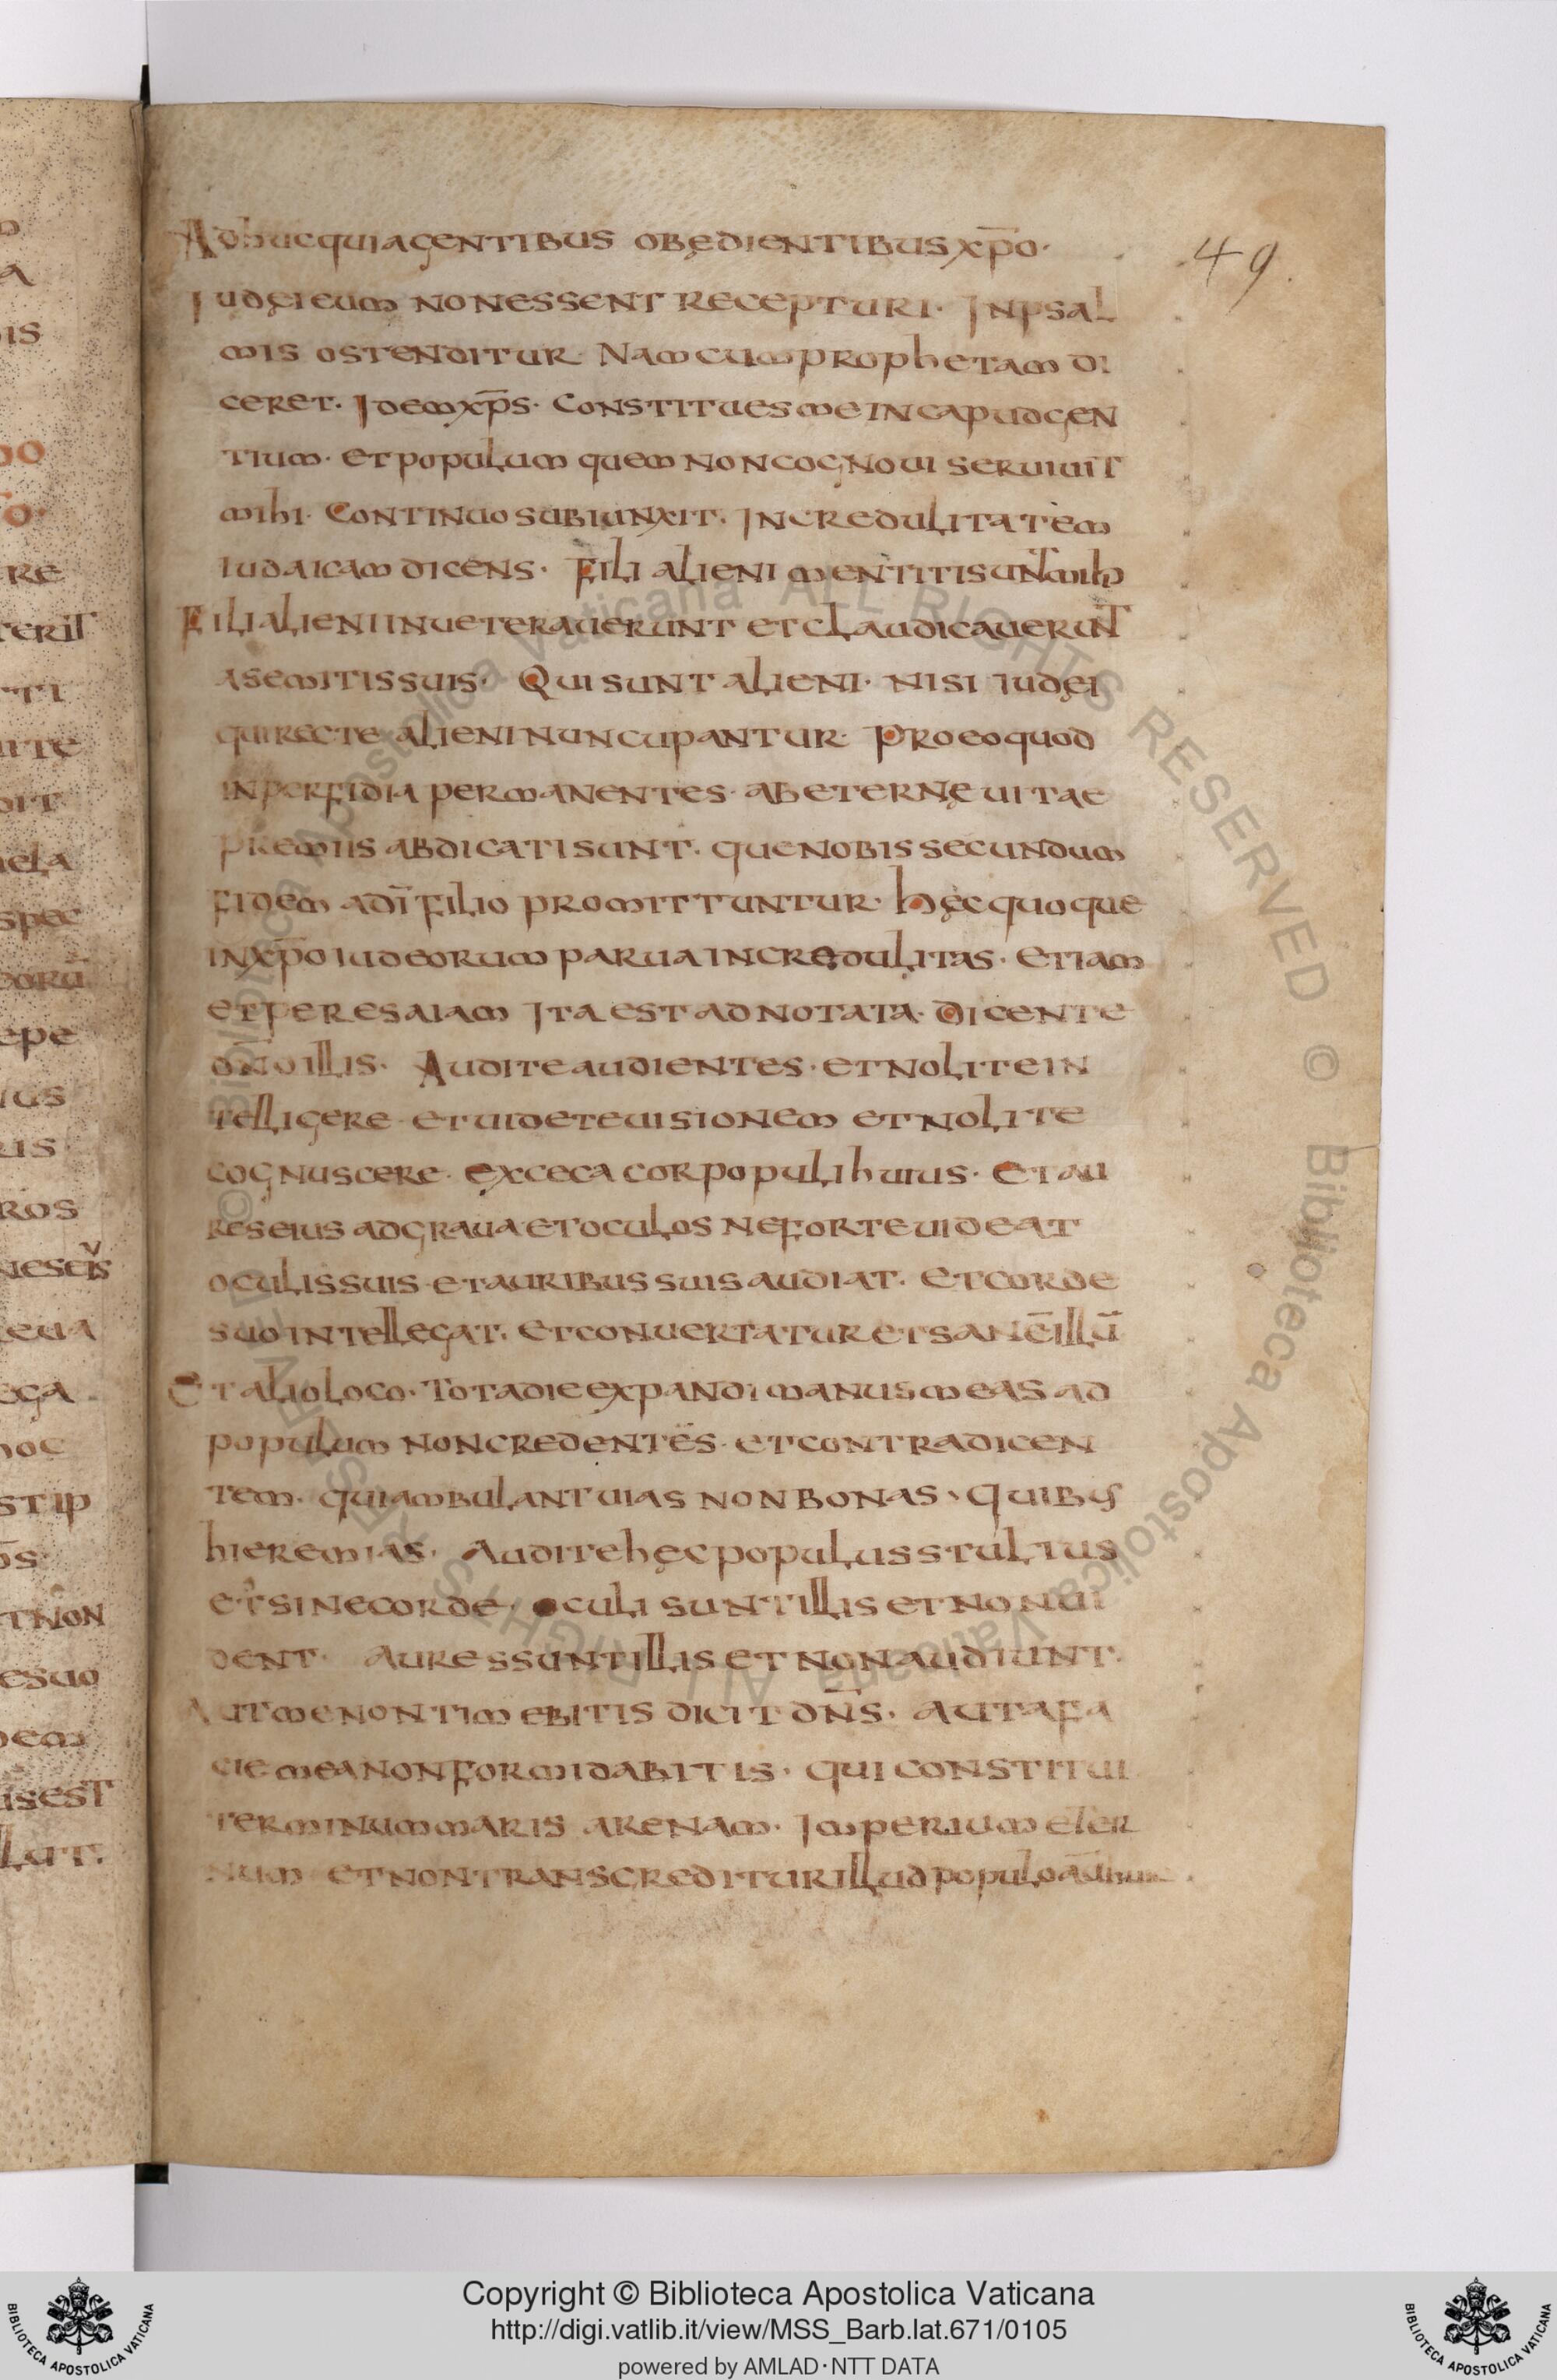 49
Adhuc quia gentibus obędientibus xp̄o·
Iudęi eum non essent recepturi· In psal
mis ostenditur· Nam cum prophetam di
ceret· Idem xp̄s· Constitues me in capud gen
tium· et populum quem non cognoui seruiuit
mihi· Continuo subiunxit· Incredulitatem
iudaicam dicens· Fili alieni mentiti sunt mihi
Fili alieni inueterauerunt et claudicauerunt
a semitis suis· Qui sunt alieni· nisi iudęi
qui recte alieni nuncupantur· Pro eo quod
in perfidia permanentes· ab eternę uitae
premiis abdicati sunt· que nobis secundum
fidem a dī filio promittuntur· Hęc quoque
in xp̄o iudeorum parua incredulitas· etiam
et per esaiam Ita est adnotata· Dicente
dn̄o illis· Audite audientes· et nolite in
tellegere et uidete uisionem et nolite
cognuscere· exceca cor populi huius· et au
res eius adgraua et oculos ne forte uideat
oculis suis et auribus suis audiat· Et corde
suo intellegat· et conuertatur et sanē illū
Et alio loco· Tota die expandi manus meas ad
populum non credentes· et contradicen
tem· qui ambulant uias non bonas· quibus
hieremias· Audite hęc populus stultus
et sine corde· oculi sunt illis et non ui
dent· Aures sunt illis et non audiunt·
Aut me non timebitis dicit dn̄s· Aut a fa
cie mea non formidabitis· qui constitui
terminum maris arenam· Imperium eter
num et non transgreditur illud populo autem huic
Copyright © Biblioteca Apostolica Vaticana
http://digi.vatlib.it/view/MSS_Barb.lat.671/0105
powered by AMLAD·NTT DATA
BIBLIOTECA APOSTOLICA VATICANA
BIBLIOTECA APOSTOLICA VATICANA